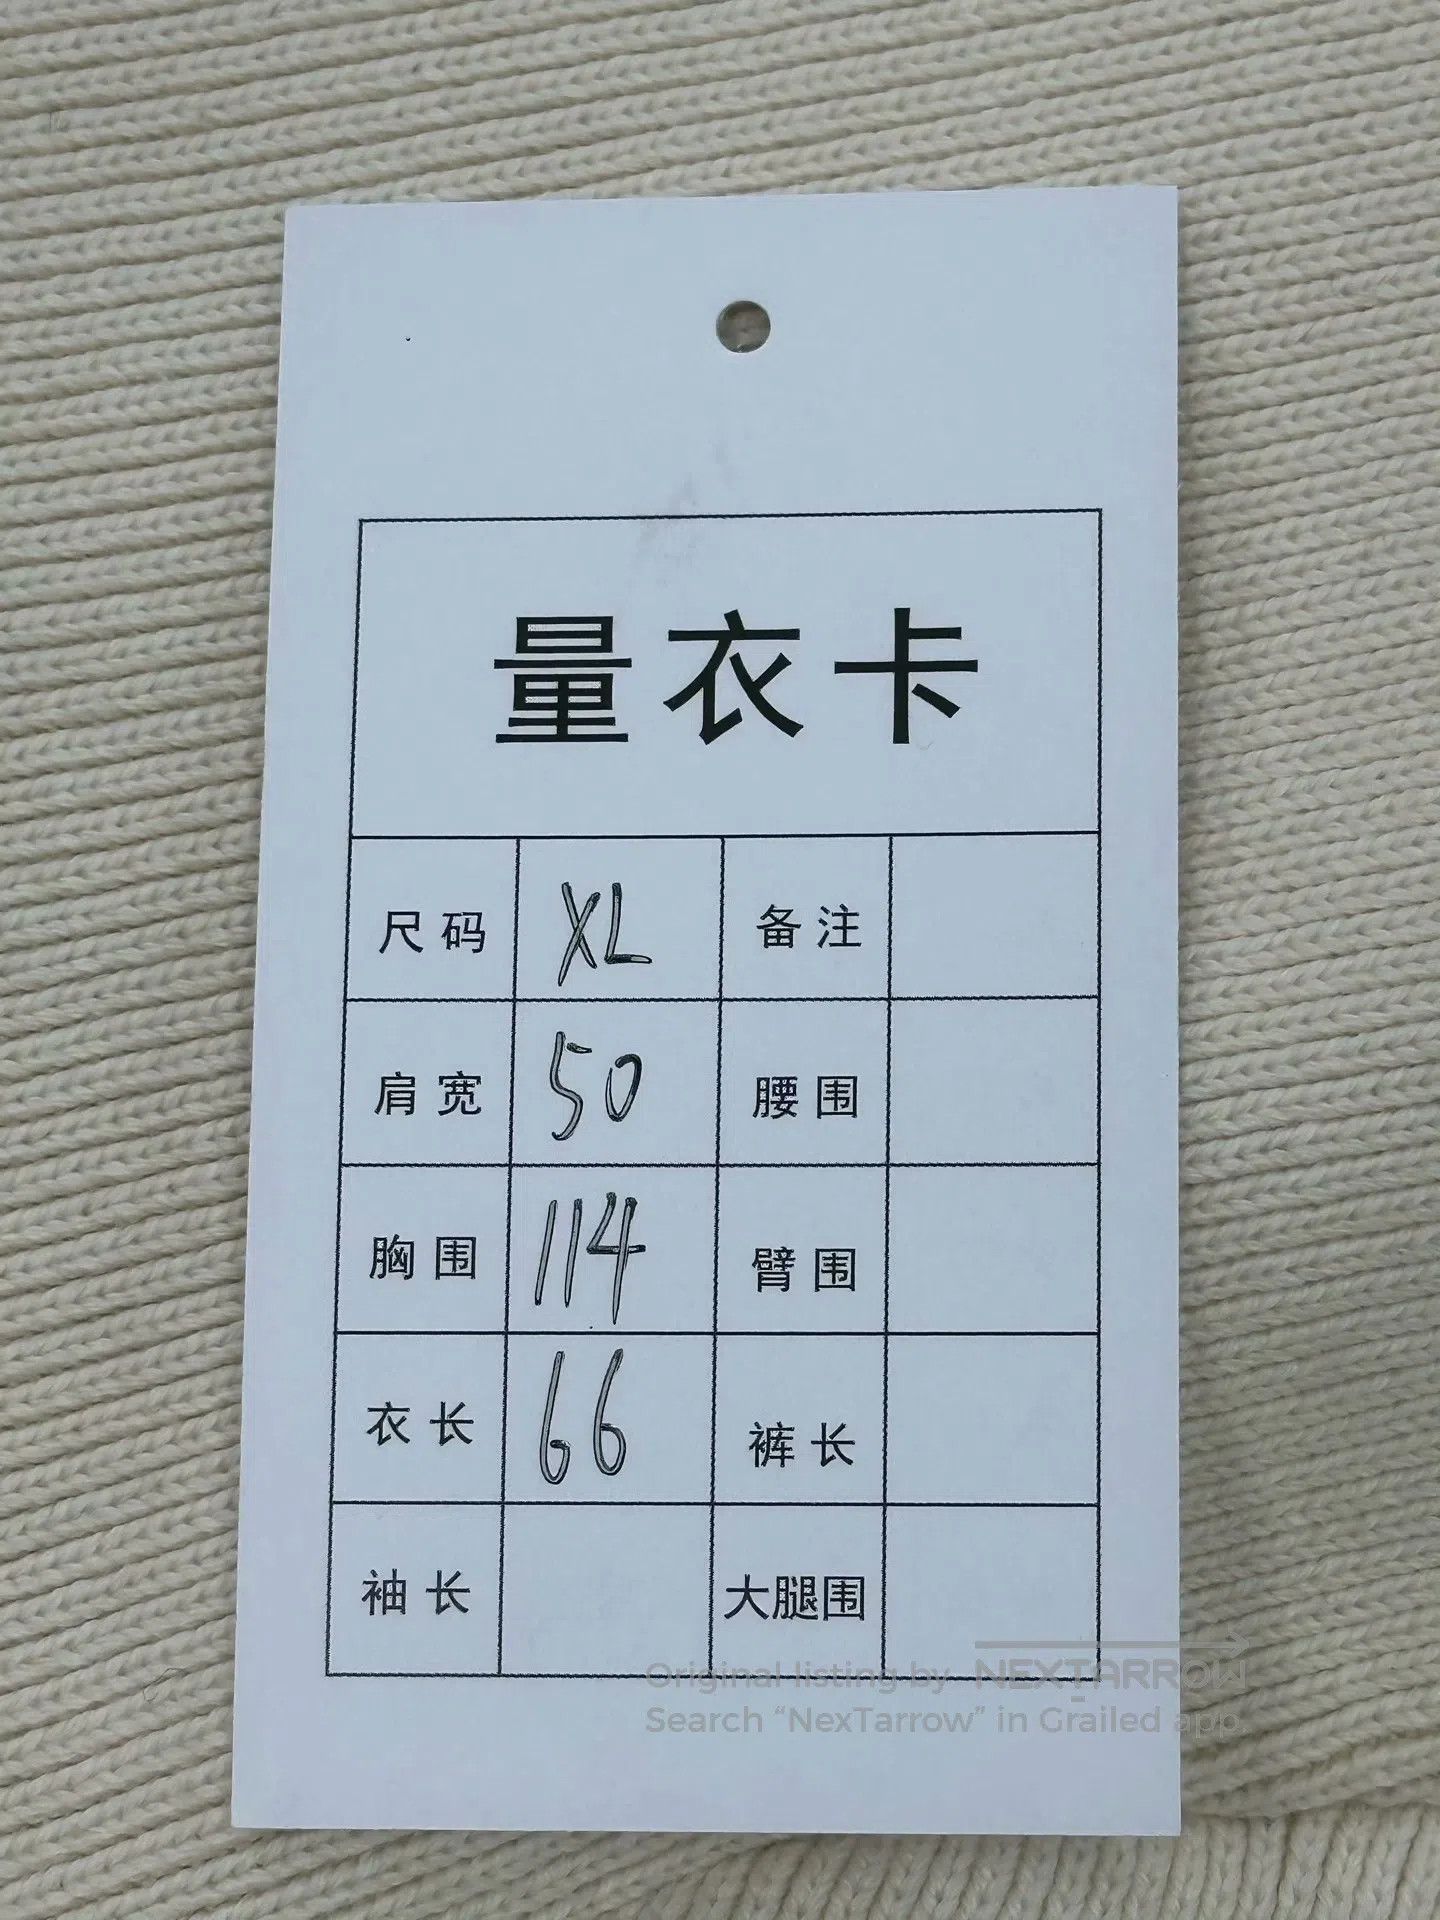 量衣卡
尺码 XL 备注
肩宽 50 腰围
胸围 114 臂围
衣长 66 裤长
袖长 大腿围
Original listing by NEXTARROW
Search “NexTarrow” in Grailed app.